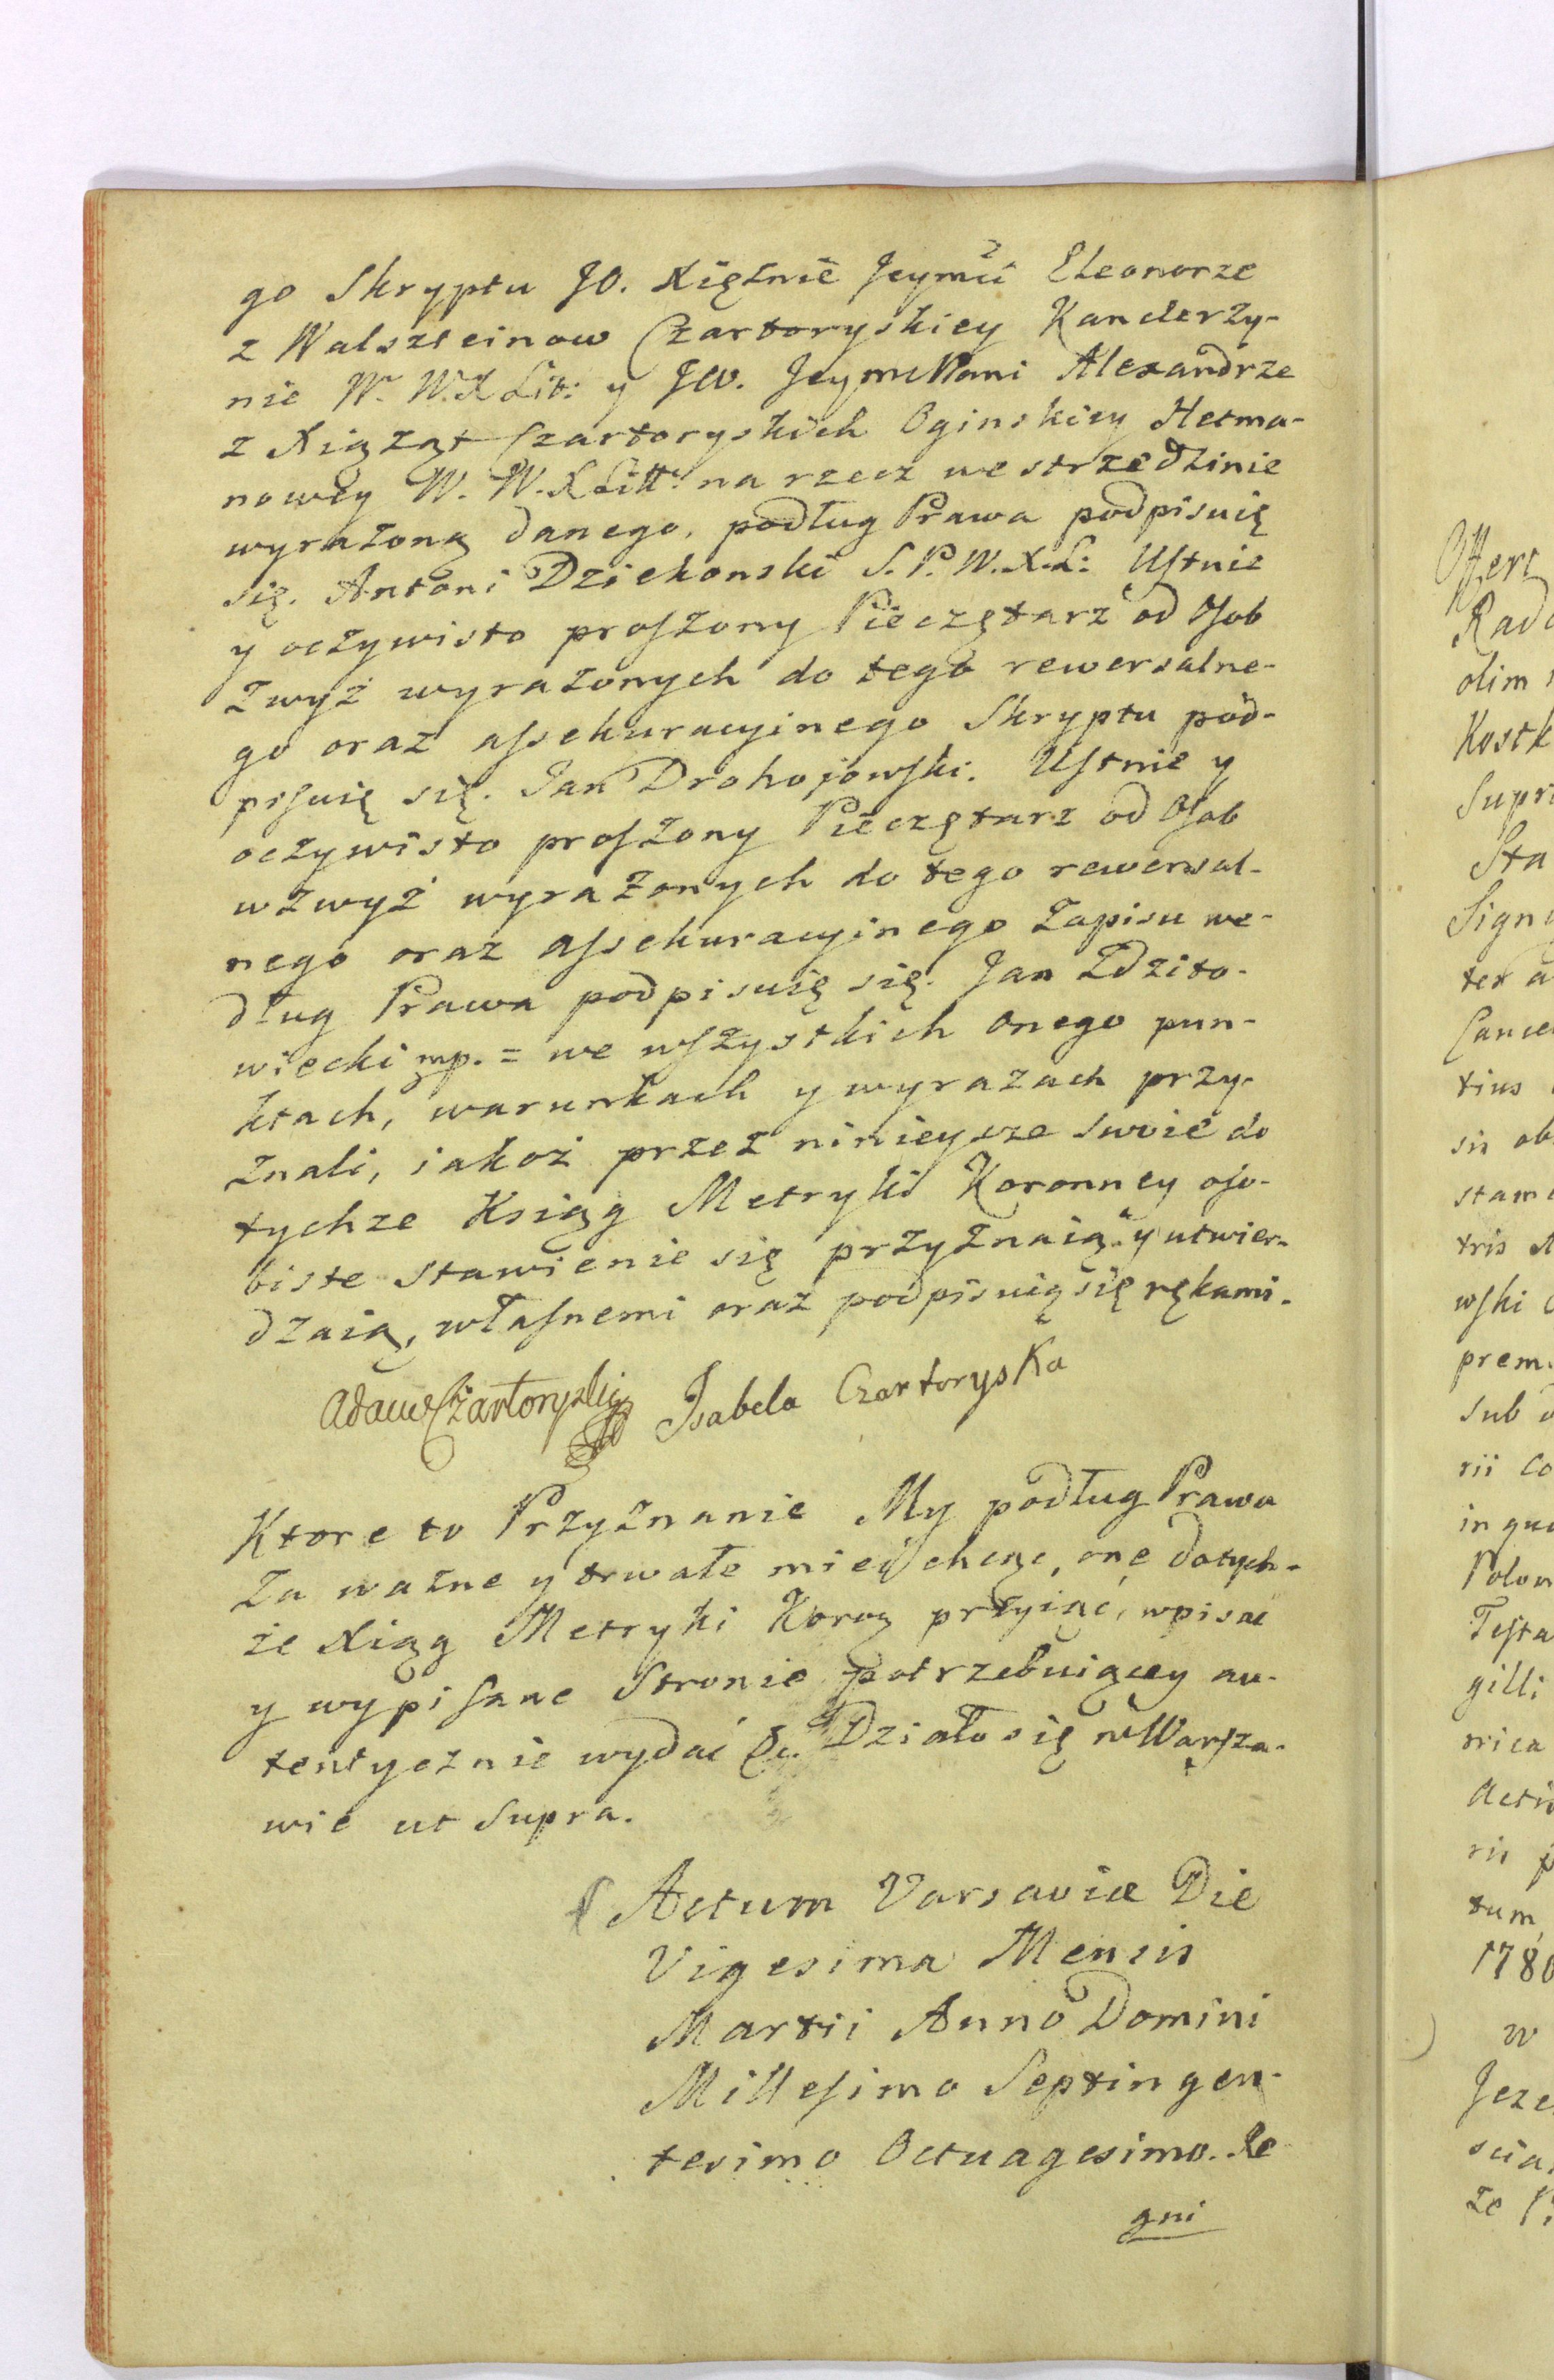 go Skryptu JO. Xiężnie Jeymci Eleonorze
z Walszteinow Czartoryskiey Kanclerzy-
nie W. W. X Litt: y JW. Jeymci Pani Alexandrze
z Xiążąt Czartoryskich Oginskiey Hetma-
nowey W. W. X Litt: na rzecz we strzedzinie
wyrażoną danego, podług Prawa podpisuię
się. Antoni Dziekonski S. P. W. X. L: Ustnie
y oczywisto proszony Pieczętarz od Osob
zwyż wyrażonych do tego rewersalne-
go oraz assekuracyinego Skryptu pod-
pisuię się. Jan Drohojowski. Ustnie y
oczywisto proszony Pieczętarz od Osob
wzwyż wyrażonych do tego rewersal-
nego oraz assekuracyinego Zapisu we-
dług Prawa podpisuię się. Jan Zdzito-
wiecki mp. = we wszystkich onego pun-
ktach, warunkach y wyrazach przy-
znali, iakoż przez ninieysze swoie do
tychze Ksiąg Metryki Koronney oso-
biste stawienie się przyznaią y utwier-
dzaią, własnemi oraz podpisuią się rękami.
Adam Czartoryski Isabela Czartoryska
Ktore to Przyznanie My podług Prawa
za ważne y trwałe mieć chcąc, one dotych-
że Xiąg Metryki Koron przyiąć, wpisac
y wypisane Stronie potrzebuiącey au-
tentycznie wydać &c. Działo się w Warsza-
wie ut Supra.
Actum Varsaviæ Die
Vigesima Mensis
Martii Anno Domini
Millesimo Septingen-
tesimo Octuagesimo. Re
gni
Offert
Rad
olim
Kostk
Supr
Sta
Sign
ter a
Cance
tius
sis ob
stam
tris
wski
prem
sub
rii Co
in qu
Polon
Testa
gilli
nica
Actis
ris p
tum
1780
w
Jeze
scia
że P